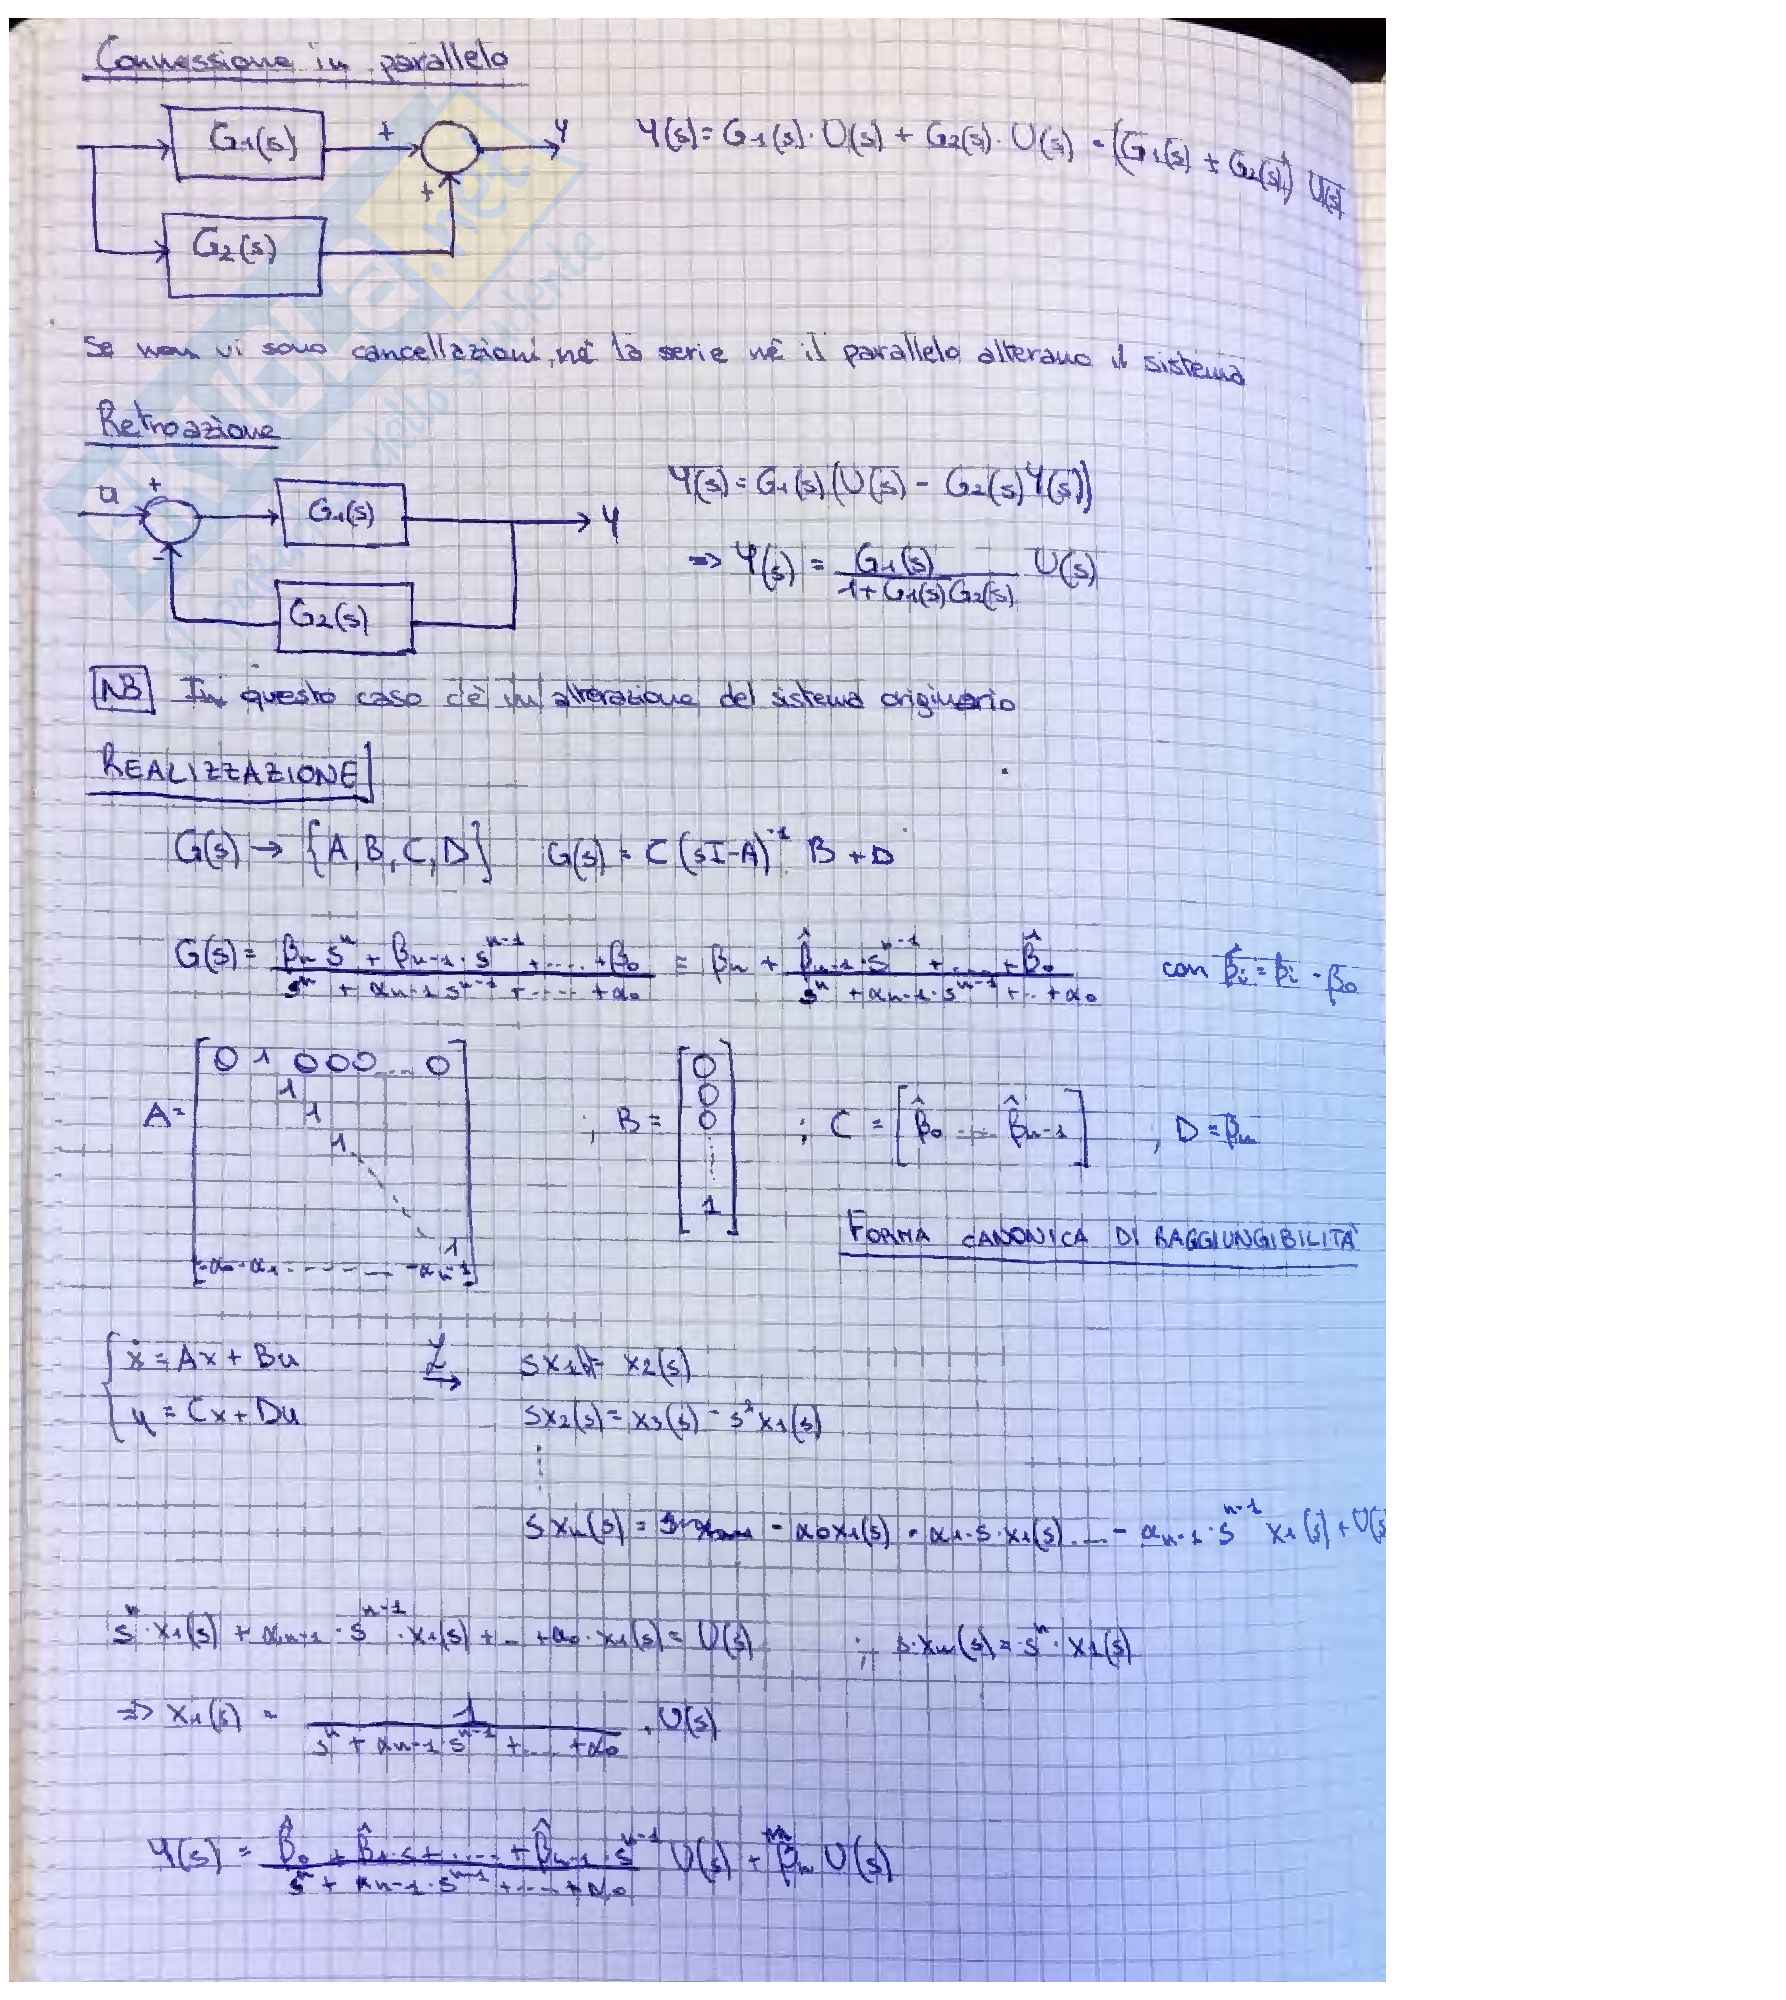 Connessione in parallelo
G1(s) + Y
+
G2(s)
Y(s) = G1(s)·U(s) + G2(s)·U(s) = (G1(s) + G2(s)) U(s)
SKUOLA.net
Se non vi sono cancellazioni, né la serie né il parallelo alterano il sistema
Retroazione
u + G1(s) Y
-
G2(s)
Y(s) = G1(s)(U(s) - G2(s)Y(s))
=> Y(s) = G1(s) / (1+G1(s)G2(s)) U(s)
NB In questo caso c'è un'alterazione del sistema originario
REALIZZAZIONE
G(s) → {A, B, C, D} G(s) = C (sI-A)^-1 B + D
G(s) = (βn s^n + βn-1·s^n-1 + ..... + β0) / (s^n + αn-1 s^n-1 + ..... + α0) = βn + (β̂n-1·s^n-1 + .... + β̂0) / (s^n + αn-1·s^n-1 + .. + α0) con β̂i = βi - β0
A = [0 1 0 0 0 ... 0
1
1
1
1
-α0 -α1 ------- -αn-1] ; B = [0 0 0 ⋮ 1] ; C = [β̂0 ... β̂n-1] ; D = βn
FORMA CANONICA DI RAGGIUNGIBILITÀ
{ ẋ = Ax + Bu
y = Cx + Du
L→
sx1 = x2(s)
sx2(s) = x3(s) = s²x1(s)
⋮
sxn(s) = - α0x1(s) - α1·s·x1(s) .... - αn-1·s^n-1 x1(s) + U(s
s^n·x1(s) + αn-1·s^n-1·x1(s) + .. + α0·x1(s) = U(s) ; s·xn(s) = s^n·x1(s)
=> x1(s) = 1 / (s^n + αn-1 s^n-1 + .... + α0) · U(s)
Y(s) = (β̂0 + β̂1·s + ..... + β̂n-1·s^n-1) / (s^n + αn-1·s^n-1 + .... + α0) U(s) + βn U(s)